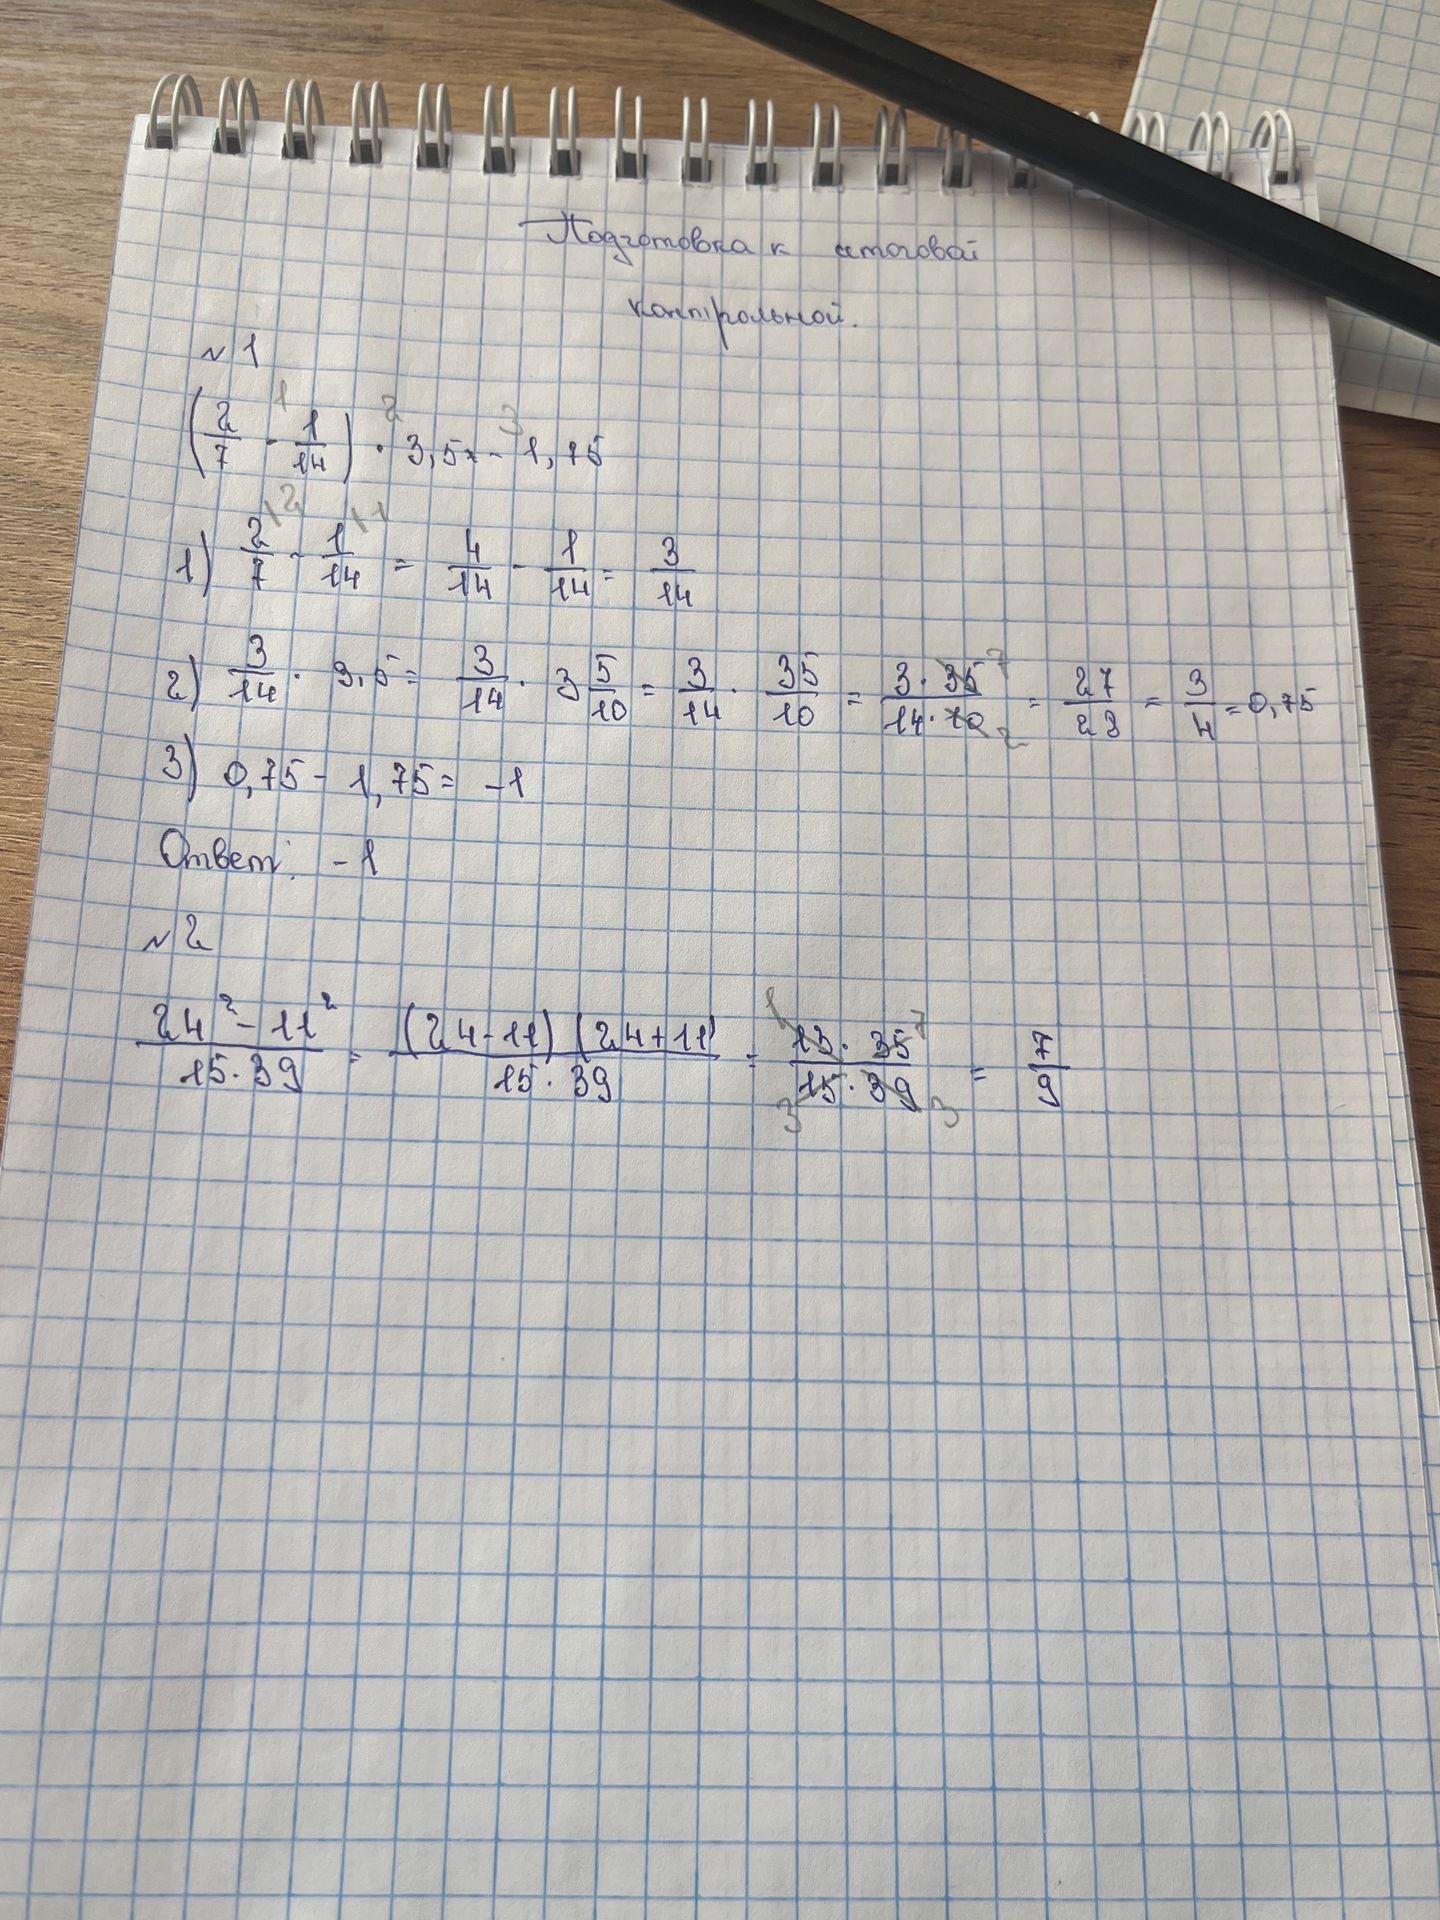 Подготовка к итоговой
контрольной.
№ 1
(2/7 - 1/14) · 3,5 - 1,75
1) 2/7 - 1/14 = 4/14 - 1/14 = 3/14
2) 3/14 · 3,5 = 3/14 · 3 5/10 = 3/14 · 35/10 = 3·35/14·10 = 27/28 = 3/4 = 0,75
3) 0,75 - 1,75 = -1
Ответ: -1
№ 2
24² - 11²/15·39 = (24-11)(24+11)/15·39 = 13·35/15·39 = 7/9